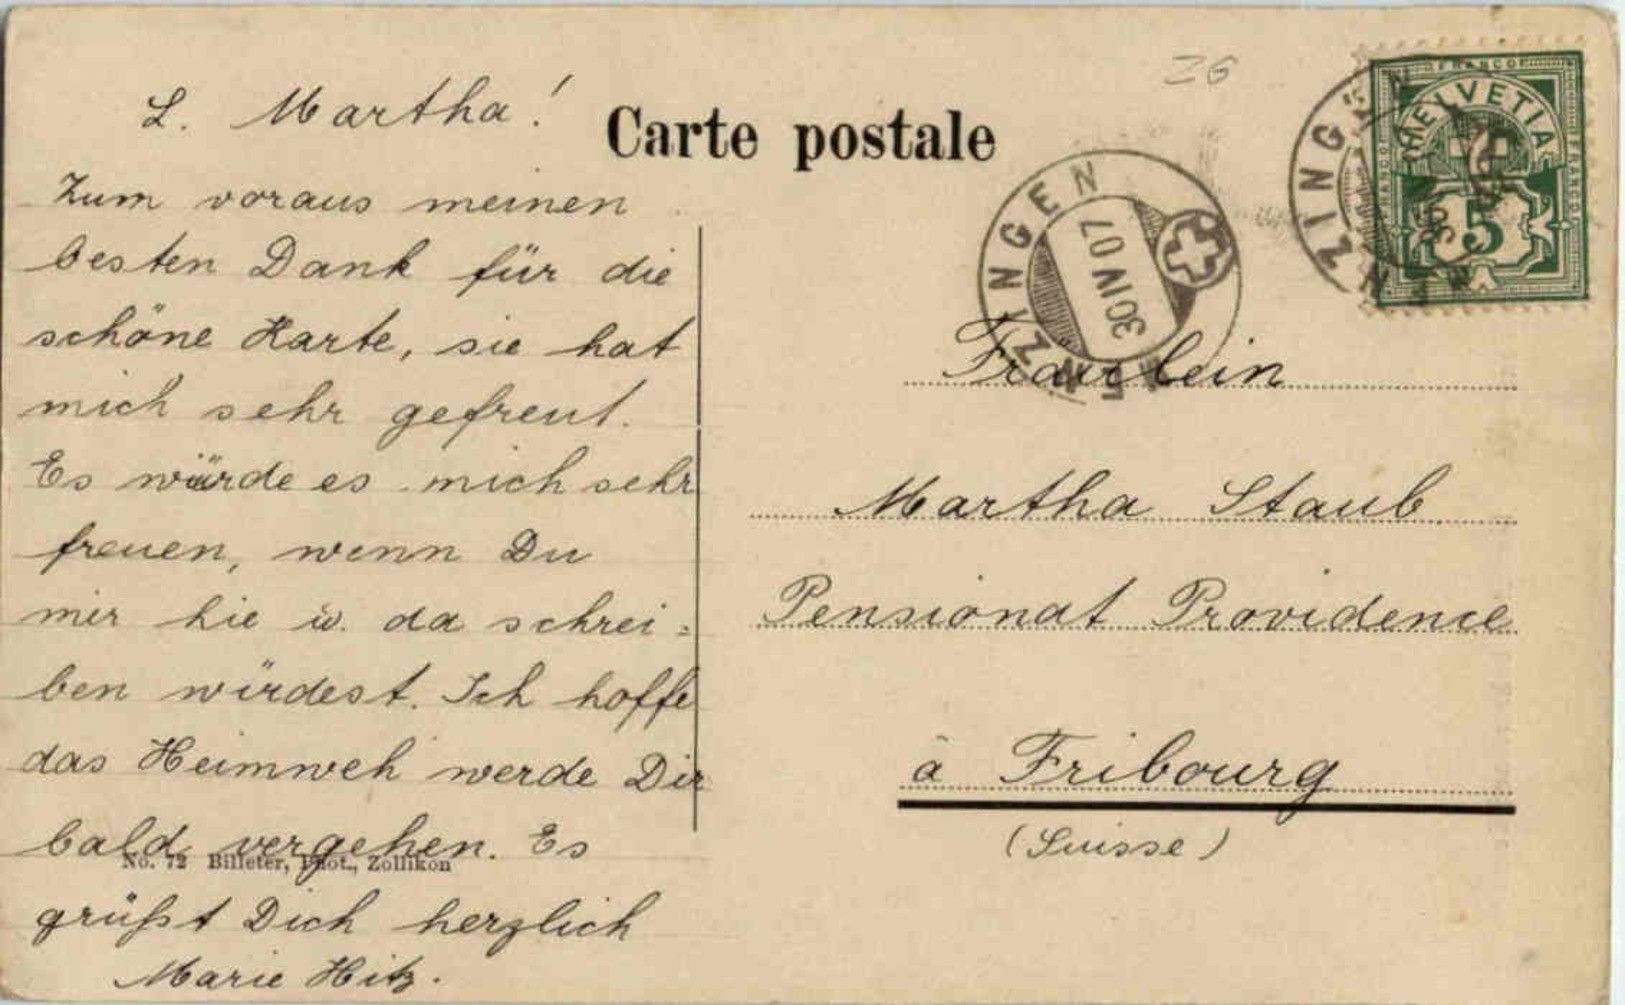 L. Martha!
Zum voraus meinen
besten Dank für die
schöne Karte, sie hat
mich sehr gefreut.
Es würde es mich sehr
freuen, wenn Du
mir hie u. da schrei=
ben würdest. Ich hoffe
das Heimweh werde Dir
bald vergehen. Es
grüßt Dich herzlich
Marie Hitz.
No. 72 Billeter, Phot., Zollikon
Carte postale
26
ZINGEN
30 IV 07
ZING
FRANCO
HELVETIA
FRANCO
5
Fräulein
Martha Staub
Pensionat Providence
à Fribourg
(Suisse)